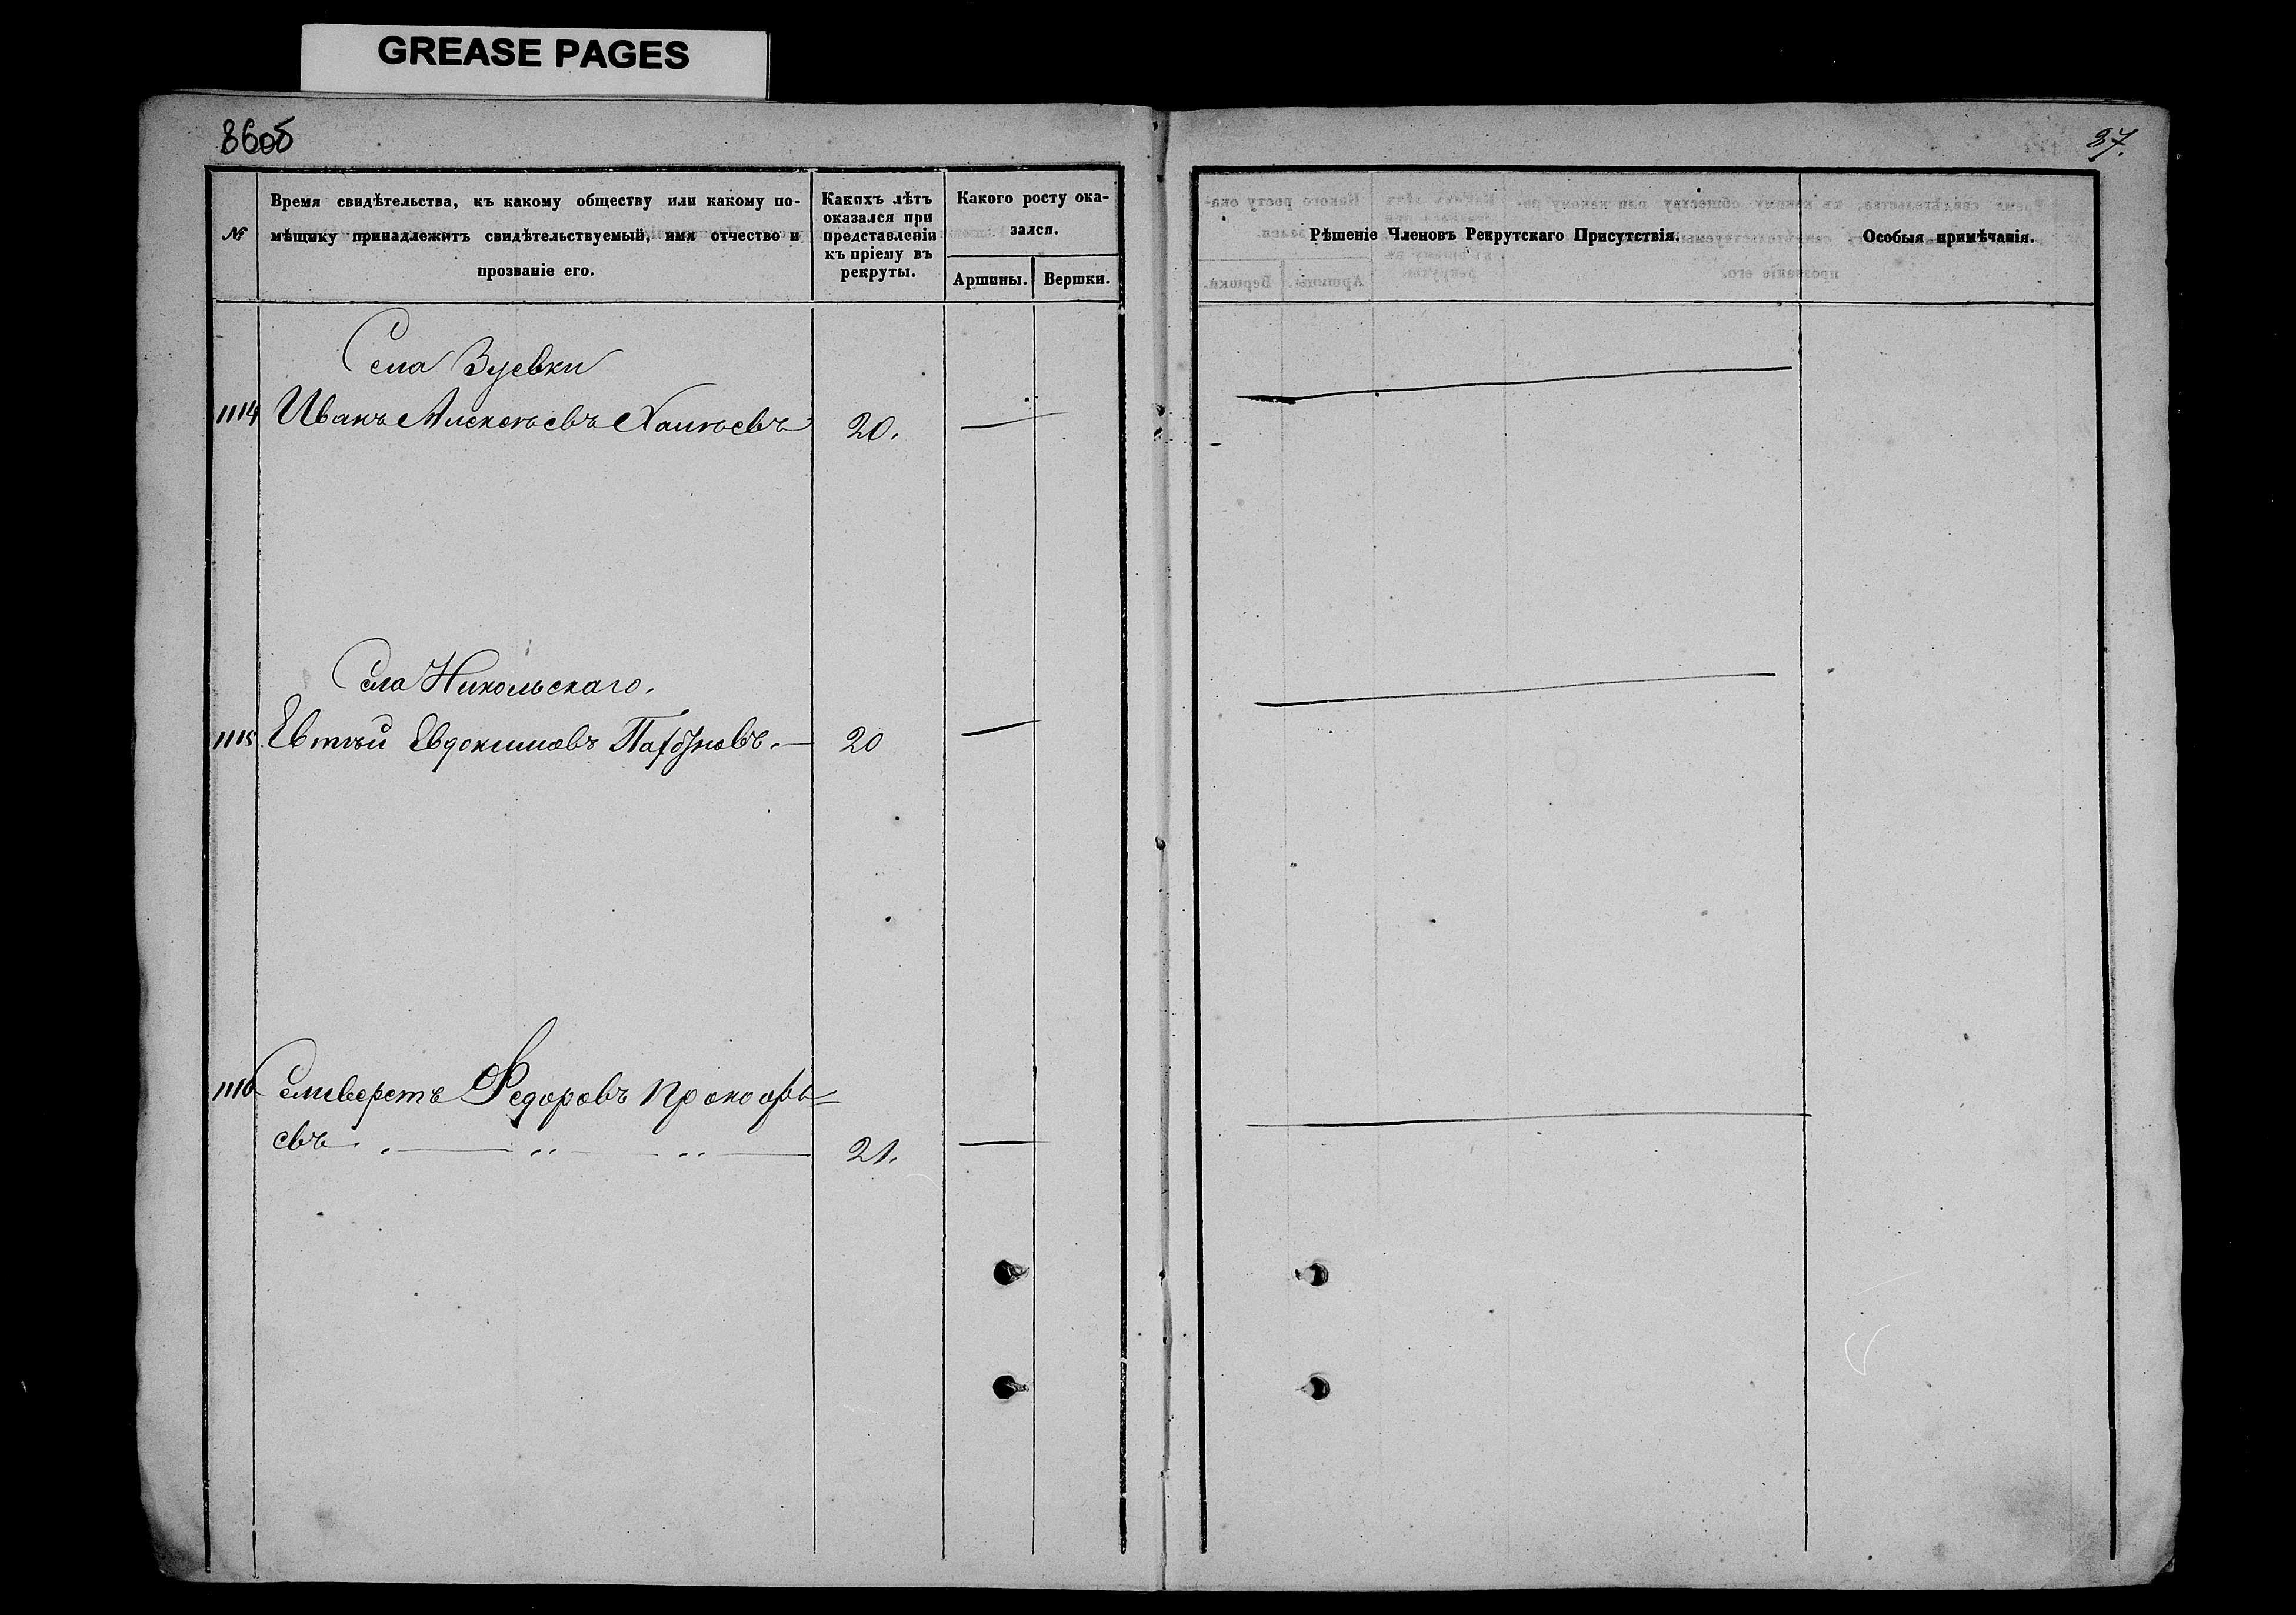 GREASE PAGES
86об
37.
№
Время свидѣтельства, къ какому обществу или какому по-
мѣщику принадлежитъ свидѣтельствуемый, имя отчество и
прозваніе его.
Какихъ лѣтъ
оказался при
представленіи
къ пріему въ
рекруты.
Какого росту ока-
зался.
Аршины.
Вершки.
Рѣшеніе Членовъ Рекрутскаго Присутствія.
Особыя примѣчанія.
Села Зуевки
1114 Иванъ Алексѣевъ 20.
Села Никольскаго.
1115 Евтѣй Евдокимовъ 20
1116 Селиверстъ Федоровъ Прокофь=
евъ 21.